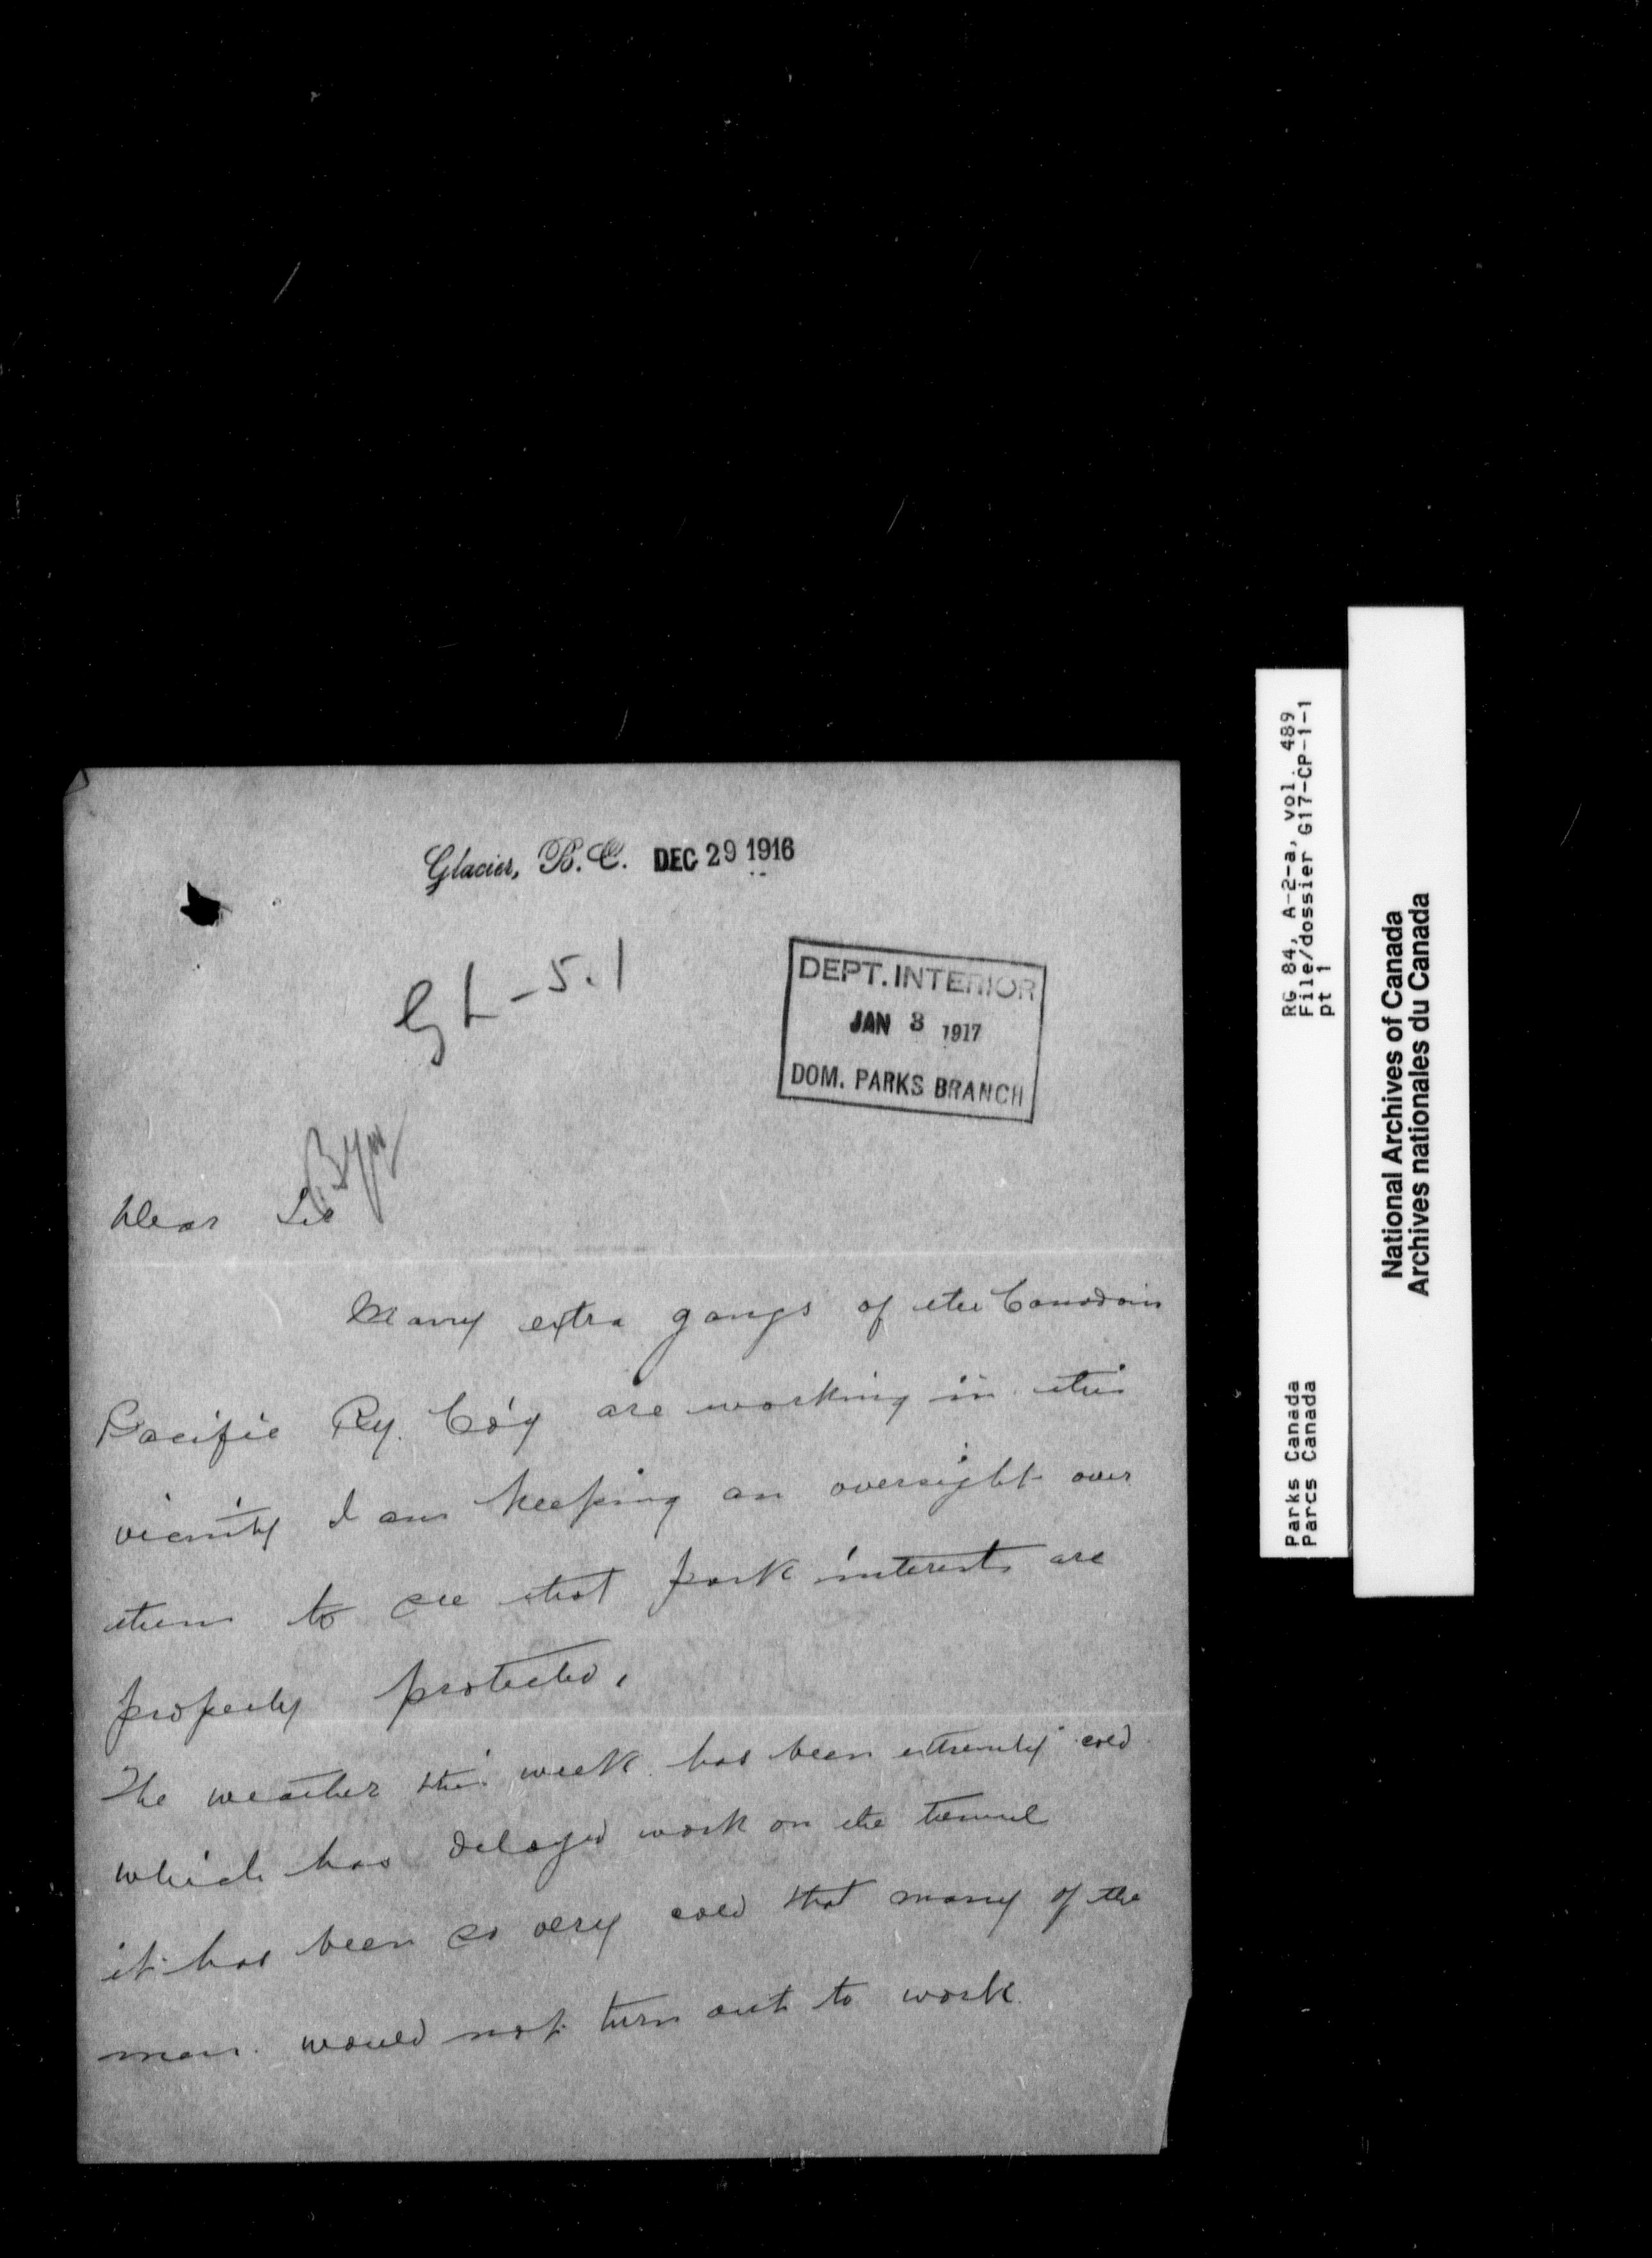 Glacier, B.C. DEC 29 1916
GL-5.1
DEPT. INTERIOR
JAN 3 1917
DOM. PARKS BRANCH
Dear Sir
Many extra gangs of the Canadain
Pacific Ry. Co'y are working in this
vicinity I am keeping an oversight over
them to see that park interests are
properly protected.
The weather this week has been extremely cold
which has delayed work on the tunnel
it has been so very cold that many of the
men would not turn out to work.
RG 84, A-2-a, vol. 489
File/dossier G17-CP-1-1
pt 1
Parks Canada
Parcs Canada
National Archives of Canada
Archives nationales du Canada